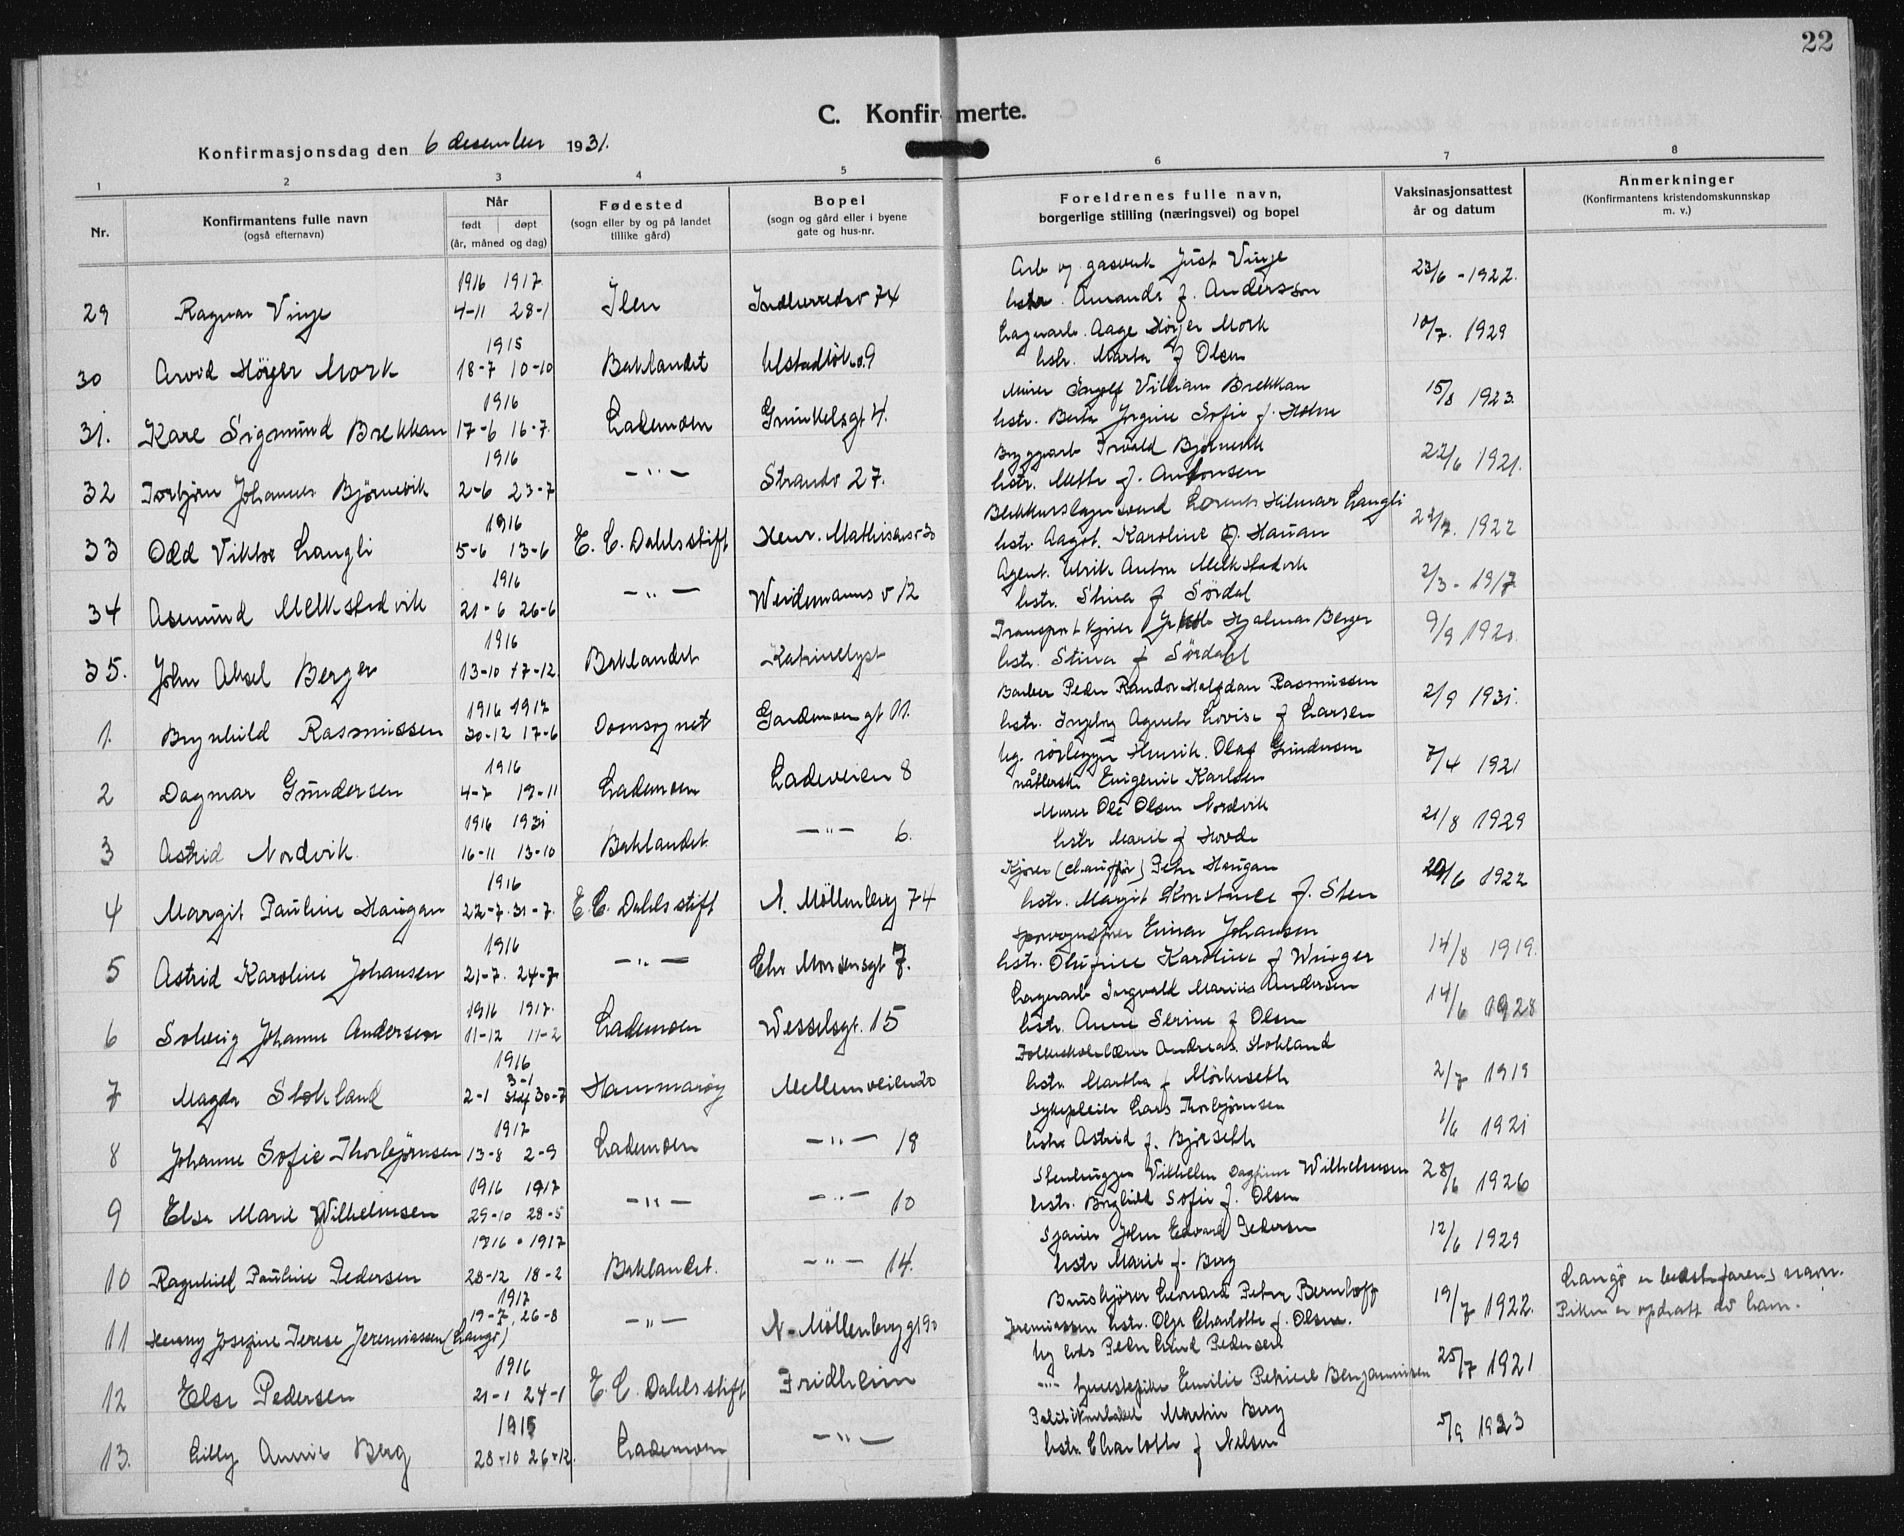 22
C. Konfirmerte.
Konfirmasjonsdag den 6 desember 1931.
1 2 3 4 5 6 7 8
Nr.
Konfirmantens fulle navn
(også efternavn)
Når
født døpt
(år, måned og dag)
Fødested
(sogn eller by og på landet
tillike gård)
Bopel
(sogn og gård eller i byene
gate og hus-nr.
Foreldrenes fulle navn,
borgerlige stilling (næringsvei) og bopel
Vaksinasjonsattest
år og datum
Anmerkninger
(Konfirmantens kristendomskunnskap
m. v.)
1916 1917 Arb v. gasverk Just Vinje
29 Ragnar Vinje 4-11 28-1 Ilen Indherredsv 74 hstr. Amanda f. Anderson 23/6 - 1922.
1915 Lagerarb. Aage Höyer Mork
30 Arvid Höyer Mork 18-7 10-10 Baklandet 9 hstr. Marta f Olsen 10/7. 1929
1916 Murer Ingolf Vilham Brekkan
31. Kare Sigmund Brekkan 17-6 16-7 Lademoen Gminkelsgt 4. hstr. Berta Jrgine Sofie f. Holm 15/8 1923.
1916 Bryggearb Trvald Björnevik
32 Torbjörn Johannes Björnevik 2-6 23-7 -"- Strandv 27. hstr. Mette f. Antonsen 22/6 1921.
1916 Blikkenslagersvend Lorents Hilmar Langli
33 Odd Viktor Langli 5-6 13-6 E. C. Dahls stift Henr. Mathisensv 30 hstr. Aagot. Karoline f. Hauan 22/7. 1922
1916 Agent. Ulrik Anton Melkstadvik
34 Asmund Melkstadvik 21-6 26-6 -"- Weidemanns v 12 hstr. Stina f Sördal 2/3 - 1917
1916 Transportkjörer Hjalmar Berger
35. John Aksel Berger 13-10 17-12. Baklandet Katrinelyst hstr. Stina f Sördahl 9/9 1920.
1916 1917 Barber Peder Randor Halfdan Rasmussen
1. Brynhild Rasmussen 30-12 17-6 Domsognet Gardemoen gt 11. hstr. Ingeborg Agnete Lovise f Larsen 2/9 1931.
1916 ug. rörlegger Henrik. Olaf Gundersen
2 Dagmar Gundersen 4-7 19-11 Lademoen Ladeveien 8 nåtlerske Eugenie Karlsen 7/4 1921
1916 1931 Murer Ole Olsen Nordvik
3 Astrid Nordvik. 16-11 13-10 Baklandet. -"- 6. hstr Marie f Hovde 21/8 1929
1916 Kjörer (chaufför) Petter Haugan
4 Margit Pauline Haugan 22-7. 31-7. E. C. Dahls stift N. Möllenberg 74 hstr. Margit Konstance f. Sten 29/6 1922
1916 Sporvognsfører Einar Johansen
5 Astrid Karoline Johansen 21-7. 24-7 -"- Chr Monsensgt 7. hstr. Olufine Karoline f Winger 14/8 1919.
1916 1917. Lagerarb Ingvald Marius Andersen
6 Solveig Johanne Andersen 11-12 11-2 Lademoen Wesselsgt. 15 hstr. Anne Serine f Olsen 14/6 1928
1916 Folkeskolelærer Andreas. Stokland
3-1
7 Magda Stokland 2-1 30-7 Hammaröy Mellemveien 20 hstr. Martha f Mörkeseth 2/7 1919
1917 Sykepleier Lars Thorbjörnsen
8 Johanne Sofie Thorbjörnsen 13-8 2-9 Lademoen -"- 18 hstr. Astrid f. Björseth 1/6 1921
1916 1917 Stenhugger Vilhelm Dagfinn Wilhelmsen
9 Elsa Marie Wilhelmsen 29-10 28-5 -"- -"- 10 hstr. Borghild Sofie f. Olsen 28/6 1926
1916 • 1917 Sjauer John Edvard Pedersen
10 Ragnhild Pauline Pedersen 28-12 18-2 Baklandet. -"- 14. hstr Marie f. Berg 12/6 1929
1917 Buskjörer Leonard Peter Bernhoff Langö er bedstefarens navn.
19-7, 26-8
11 Henny Josefine Terese Jeremiassen (Langö) -"- N. Möllenberg gt 90 Jeremiassen hstr. Olga Charlotte f. Olsen. 19/7 1922. Piken er opdratt av ham.
1916 ug Peder Lund Pedersen
12 Else Pedersen 21-1 24-1 E. C. Dahls stift Fridheim -"- tjenestepike Emilie Petrine Benjaminsen 25/7 1921
1915 Politikonstabel Martin Berg
13. Lilly Annie Berg 28-10 26-12. Lademoen -"- hstr. Charlotte f Nilsen 5/9 1923